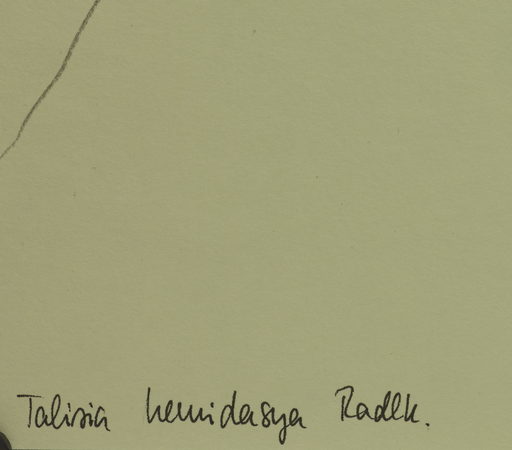 Talisia hemidasya Radlk.